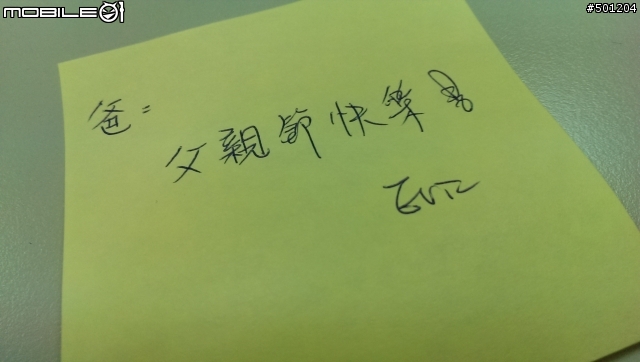 MOBILE01
#501204
爸:
父親節快樂
Eric